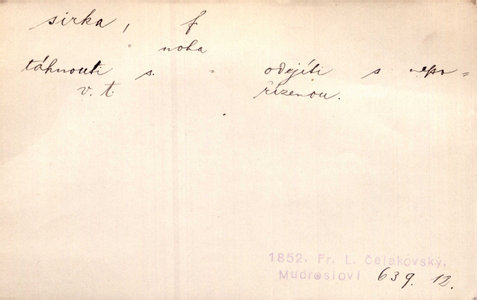 sirka, f
noha
táhnouti s. odejíti s nepo=
v. t. řízenou.
1852. Fr. L. Čelakovský,
Mudrosloví 639. 12.